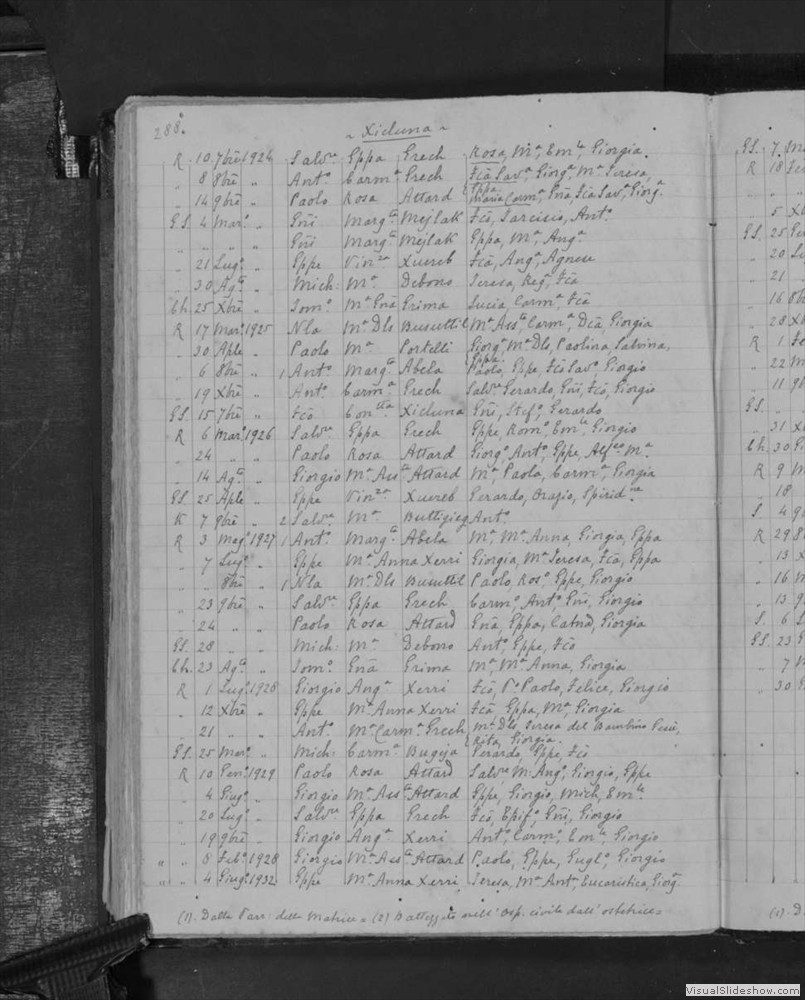 288.
~ Xicluna ~
R. 10 7bre 1924 Salvre Gppa Grech Rosa, Ma, Emle, Giorgia.
" 8 8bre " Anto Carma Grech Fca Sava, Giorga, Ma Teresa,
Gppa
" 14 9bre " Paolo Rosa Attard Maria Carma, Gna, Fca Sava, Giorga
GS. 4 Maro " Gni Margta Mejlak Fco, Tarcisio, Anto
" " " " Gni Margta Mejlak Gppa, Ma, Anga
" 21 Lugo " Gppe Vinza Xuereb Fca, Anga, Agnese
" 30 Agto " Mich: Ma Debono Teresa, Rega, Fca
Ch. 25 Xbre " Tomo Ma Gna Grima Lucia, Carma, Fca
R 17 Maro 1925 Nla Ma Dls Busuttil Ma Assta, Carma, Dca, Giorgia
" 30 Aple " Paolo Ma Portelli Giorga, Ma Dls, Paolina, Salvina,
Gppa
" 6 8bre " 1 Anto Margta Abela Paolo, Gppe, Fco Savo, Giorgio
" 19 Xbre " Anto Carma Grech Salvre, Gerardo, Gni, Fco, Giorgio
GS. 15 7bre " Fco Contta Xicluna Gni, Stefo, Gerardo
R 6 Maro 1926 Salvre Gppa Grech Gppe, Romo, Emle, Giorgio
" 24 " " Paolo Rosa Attard Giorgo, Anto, Gppe, Alfeo, Ma
" 14 Agto " Giorgio Ma Assta Attard Ma, Paola, Carma, Giorgia
GS. 25 Aple " Gppe Vinza Xuereb Gerardo, Orazio, Spiridne
K 7 9bre " 2 Salvre Ma Buttigieg Anto
R 3 Mago 1927 1 Anto Margta Abela Ma, Ma Anna, Giorgia, Gppa
" 7 Lugo " Gppe Ma Anna Xerri Giorgia, Ma Teresa, Fca, Gppa
" " 8bre " 1 Nla Ma Dls Busuttil Paolo, Roso, Gppe, Giorgio
" 23 9bre " Salvre Gppa Grech Carmo, Anto, Gni, Giorgio
" 24 " " Paolo Rosa Attard Gna, Gppa, Catna, Giorgia
GS. 28 " " Mich: Ma Debono Anto, Gppe, Fco
Ch. 23 Agto " Tomo Gna Grima Ma, Ma Anna, Giorgia
R 1 Lugo 1928 Giorgio Anga Xerri Fco, Po Paolo, Felice, Giorgio
" 12 Xbre " Gppe Ma Anna Xerri Fca, Gppa, Ma, Giorgia
" 21 " " Anto Ma Carma Grech Ma Dls, Teresa del Bambino Gesù,
Rita, Giorgia.
GS. 25 Maro " Mich: Carma Bugeja Gerardo, Gppe, Fco
R 10 Geno 1929 Paolo Rosa Attard Salvre M. Ango, Giorgio, Gppe
" 4 Giugo " Giorgio Ma Assta Attard Gppe, Giorgio, Mich, Emle
" 20 Lugo " Salvre Gppa Grech Fco, Epifo, Gni, Giorgio
" 19 9bre " Giorgio Anga Xerri Anto, Carmo, Emle, Giorgio
" " 8 Febo 1928 Giorgio Ma Assta Attard Paolo, Gppe, Guglo, Giorgio
" " 4 Giugo 1932 Gppe Ma Anna Xerri Teresa, Ma Anta, Eucaristica, Giorga
(1). Dalla Parr: della Matrice = (2) Battezzato nell' Osp. civile dall' ostetrice =
GS. 7
R 18
" 5
GS. 25
" 20
" 21
" 16
" 28
R 1
" 22
" 11
GS. "
" 31
Ch. 30
R 9
" 18
S. 4
R 29
" 13
" 16
" 13
S. 6
GS. 23
" 7
" 30
(1).
VisualSlideshow.com